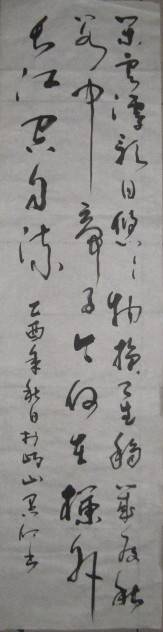 閒雲潭影日悠々物換星移幾度秋
閣中帝子今何在檻外
長江空自流
乙酉年秋日於山书